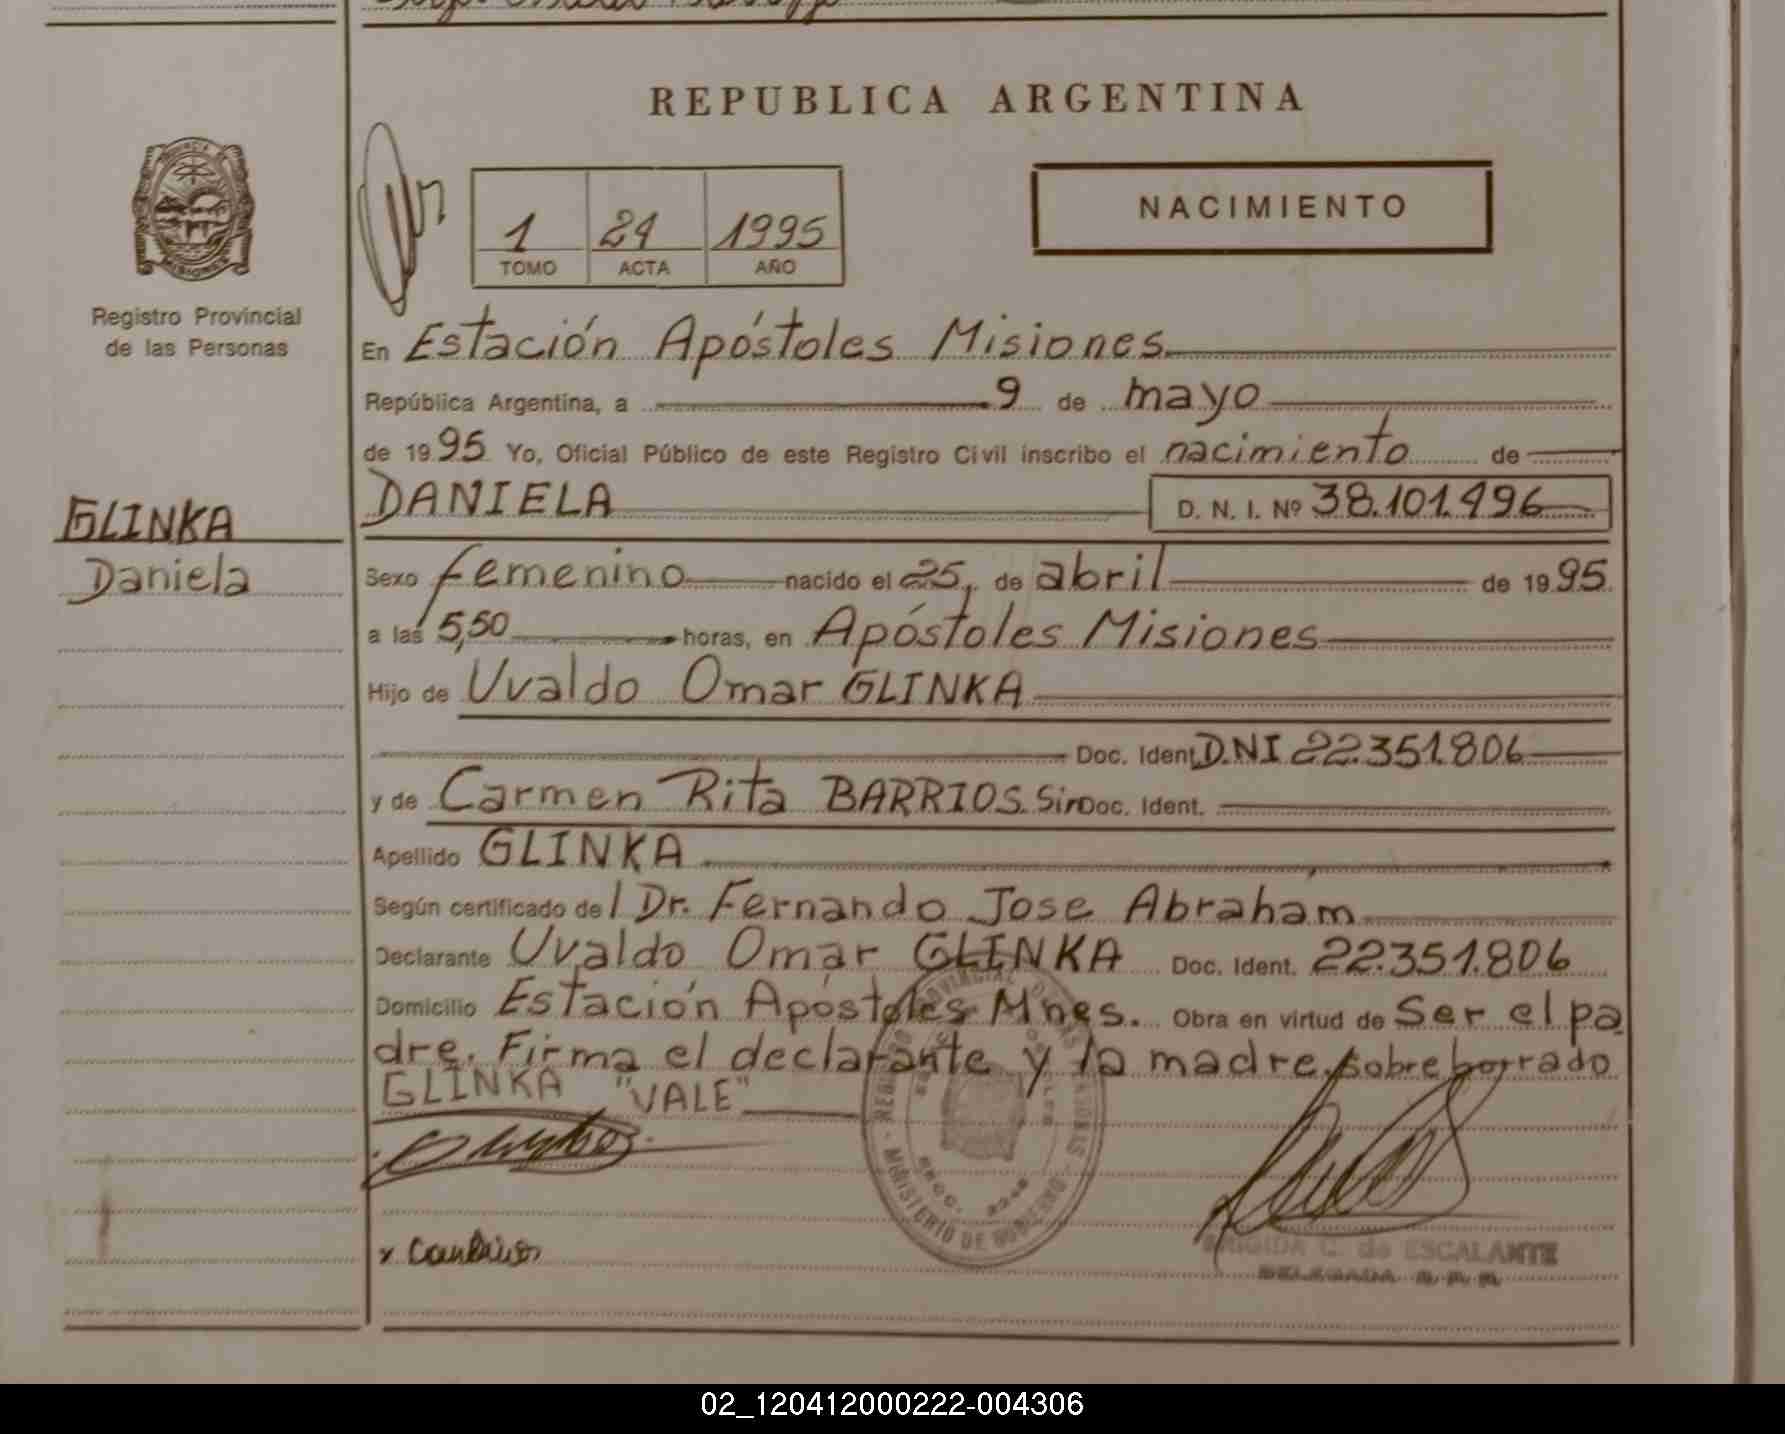 REPUBLICA ARGENTINA
NACIMIENTO
1 21 1995
TOMO ACTA AÑO
PROVINCIA
MISIONES
Registro Provincial
de las Personas
En Estación Apóstoles Misiones
República Argentina, a 9 de mayo
de 1995 Yo, Oficial Público de este Registro Civil inscribo el nacimiento de
GLINKA
Daniela
DANIELA D. N. I. Nº 38.101.496
Sexo femenino nacido el 25, de abril de 1995
a las 5,50 horas, en Apóstoles Misiones
Hijo de Uvaldo Omar GLINKA
Doc. Ident. D.NI 22.351.806
y de Carmen Rita BARRIOS Sin Doc. Ident.
Apellido GLINKA
Según certificado del Dr. Fernando Jose Abraham
Declarante Uvaldo Omar GLINKA Doc. Ident. 22.351.806
Domicilio Estación Apóstoles Mnes. Obra en virtud de Ser el pa
dre. Firma el declarante y la madre. sobreborrado
GLINKA "VALE"
REGISTRO PROVINCIAL DE LAS PERSONAS
MINISTERIO DE GOBIERNO
BRIGIDA C. de ESCALANTE
DELEGADA R. P. P.
02_120412000222-004306